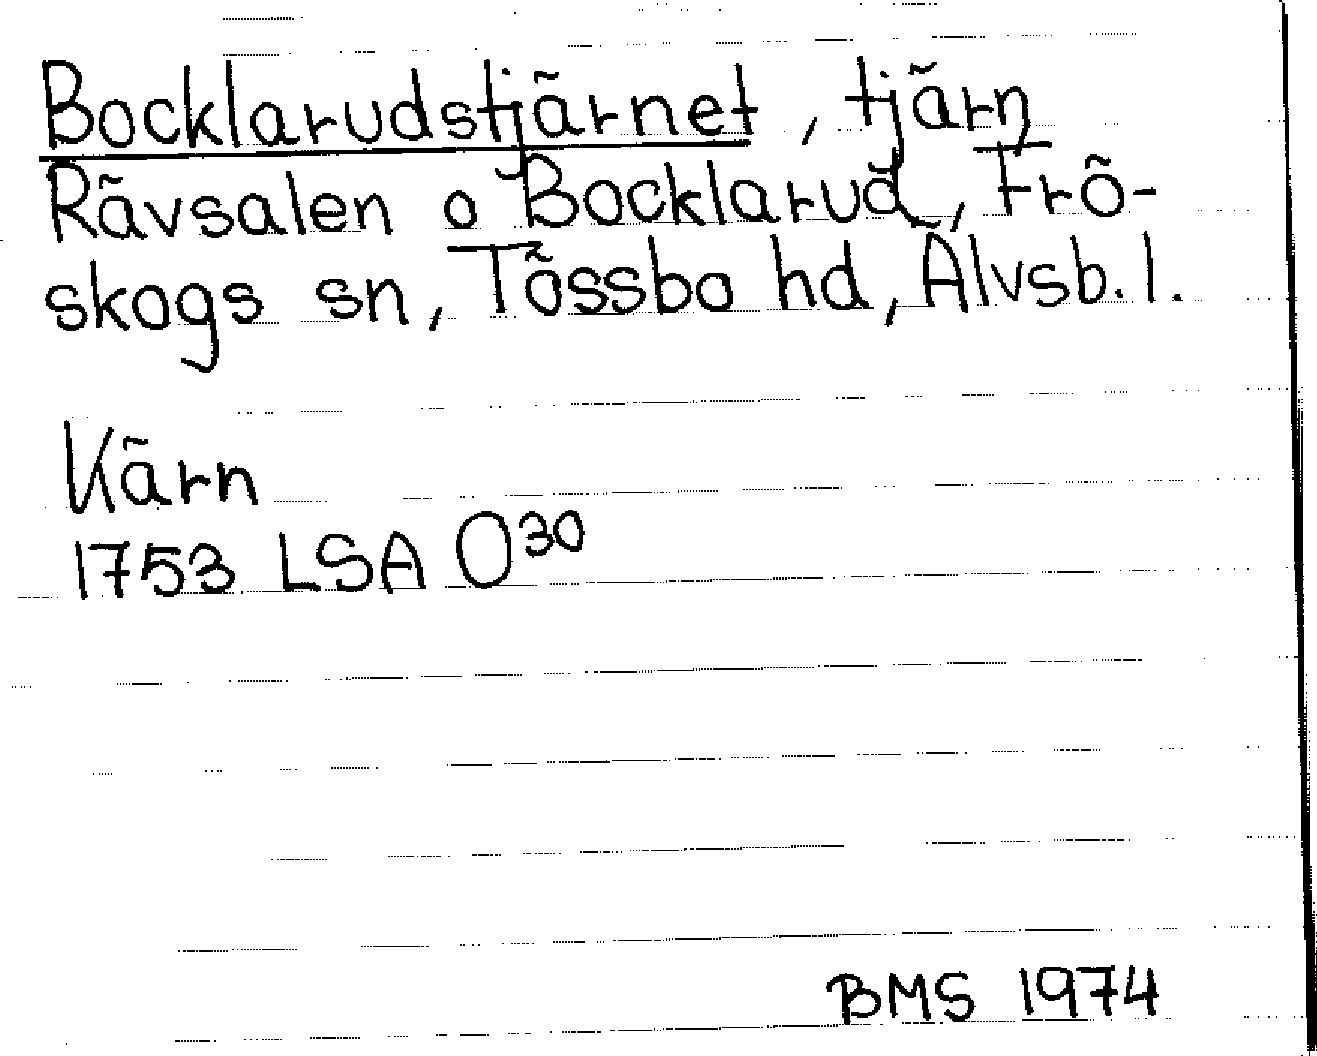 Bocklarudstjärnet, tjärn
Rävsalen o Bocklarud, Frö-
skogs sn, Tössbo hd, Älvsb. l.
Kärn
1753 LSA O30
BMS 1974